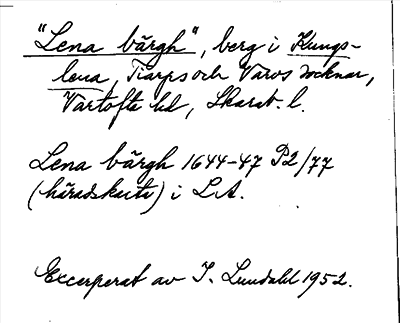 "Lena bärgh", berg i Kungs-
lena, Tiarps och Varvs socknar,
Vartofta hd, Skarab. l.
Lena bärgh 1644-47 P2/77
(häradskarta) i L.A.
Excerperat av I. Lundahl 1952.